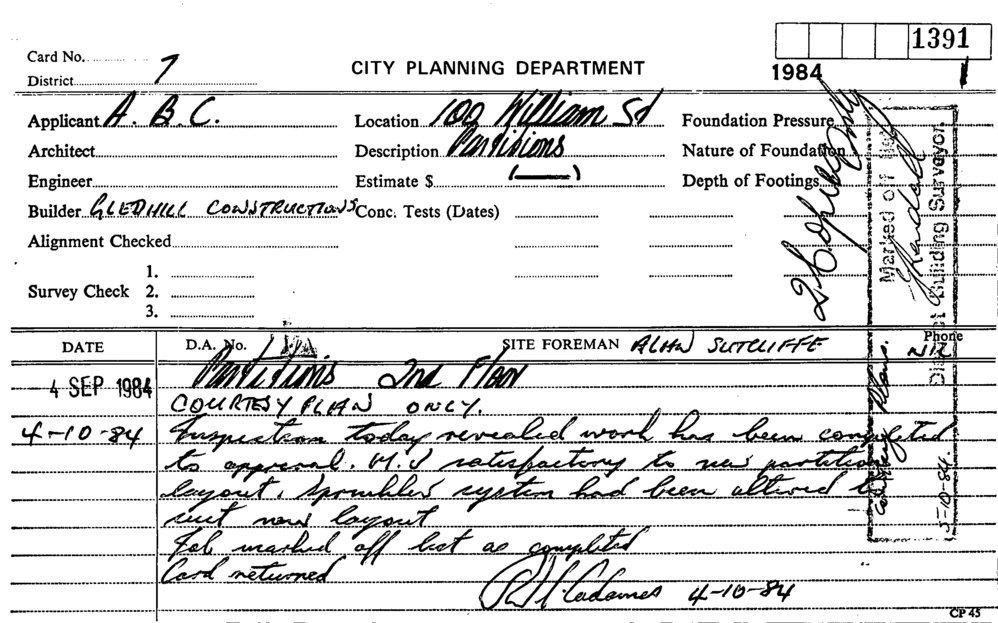 1391
1984 1
Card No.
District 7
CITY PLANNING DEPARTMENT
Applicant A. B. C.
Location 100 William St
Foundation Pressure
Architect
Description Partitions
Nature of Foundation
Engineer
Estimate $ (—)
Depth of Footings
Builder GLEDHILL CONSTRUCTIONS
Conc. Tests (Dates)
Alignment Checked
Survey Check 1.
2.
3.
2 Copies Only
Marked off list
District Building Surveyor.
Plans.
5-10-84.
DATE
D.A. No.
SITE FOREMAN ALAN SUTCLIFFE
Phone
NIL
4 SEP 1984
Partitions 2nd Floor
COURTESY PLAN ONLY.
4-10-84
Inspection today revealed work has been completed
to approval. M.V satisfactory to new partition
layout. Sprinkler system had been altered to
suit new layout
Job marked off list as completed
Card returned
4-10-84
CP 45